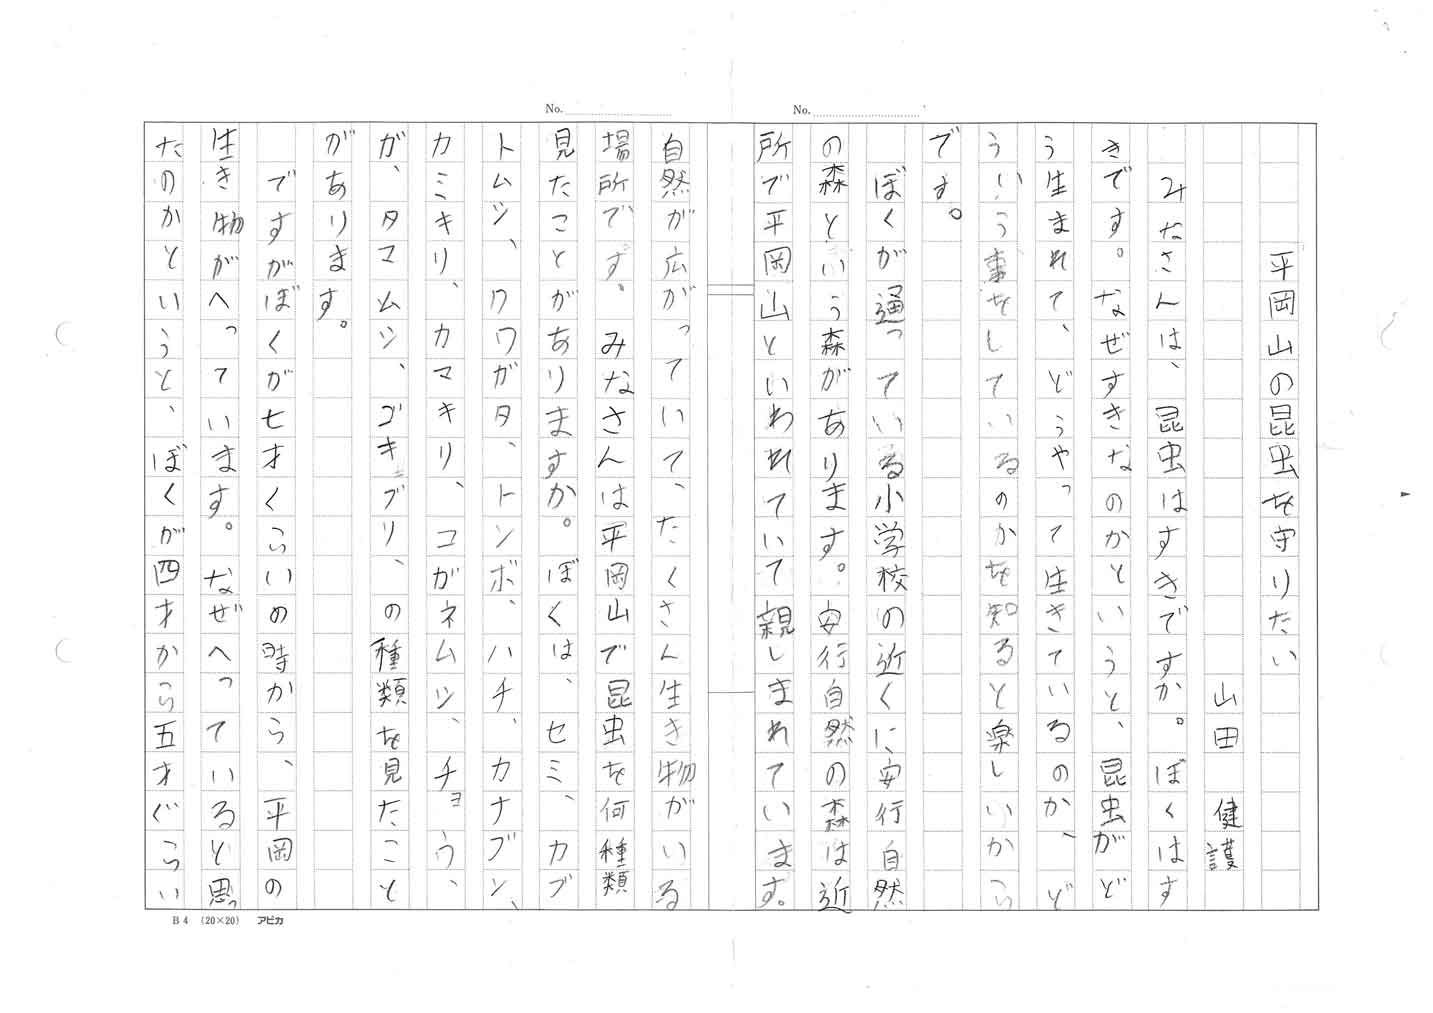 No.
No.
平岡山の昆虫を守りたい
山田 健護
みなさんは、昆虫はすきですか。ぼくはす
きです。なぜすきなのかというと、昆虫がど
う生まれて、どうやって生きているのか、ど
ういう事をしているのかを知ると楽しいから
です。
ぼくが通っている小学校の近くに安行自然
の森という森があります。安行自然の森は近
所で平岡山といわれていて親しまれています。
自然が広がっていて、たくさん生き物がいる
場所です。みなさんは平岡山で昆虫を何種類
見たことがありますか。ぼくは、セミ、カブ
トムシ、クワガタ、トンボ、ハチ、カナブン、
カミキリ、カマキリ、コガネムシ、チョウ、
が、タマムシ、ゴキブリ、の種類を見たこと
があります。
ですがぼくが七才くらいの時から、平岡の
生き物がへっています。なぜへっていると思っ
たのかというと、ぼくが四才から五才ぐらい
B4 (20×20) アピカ